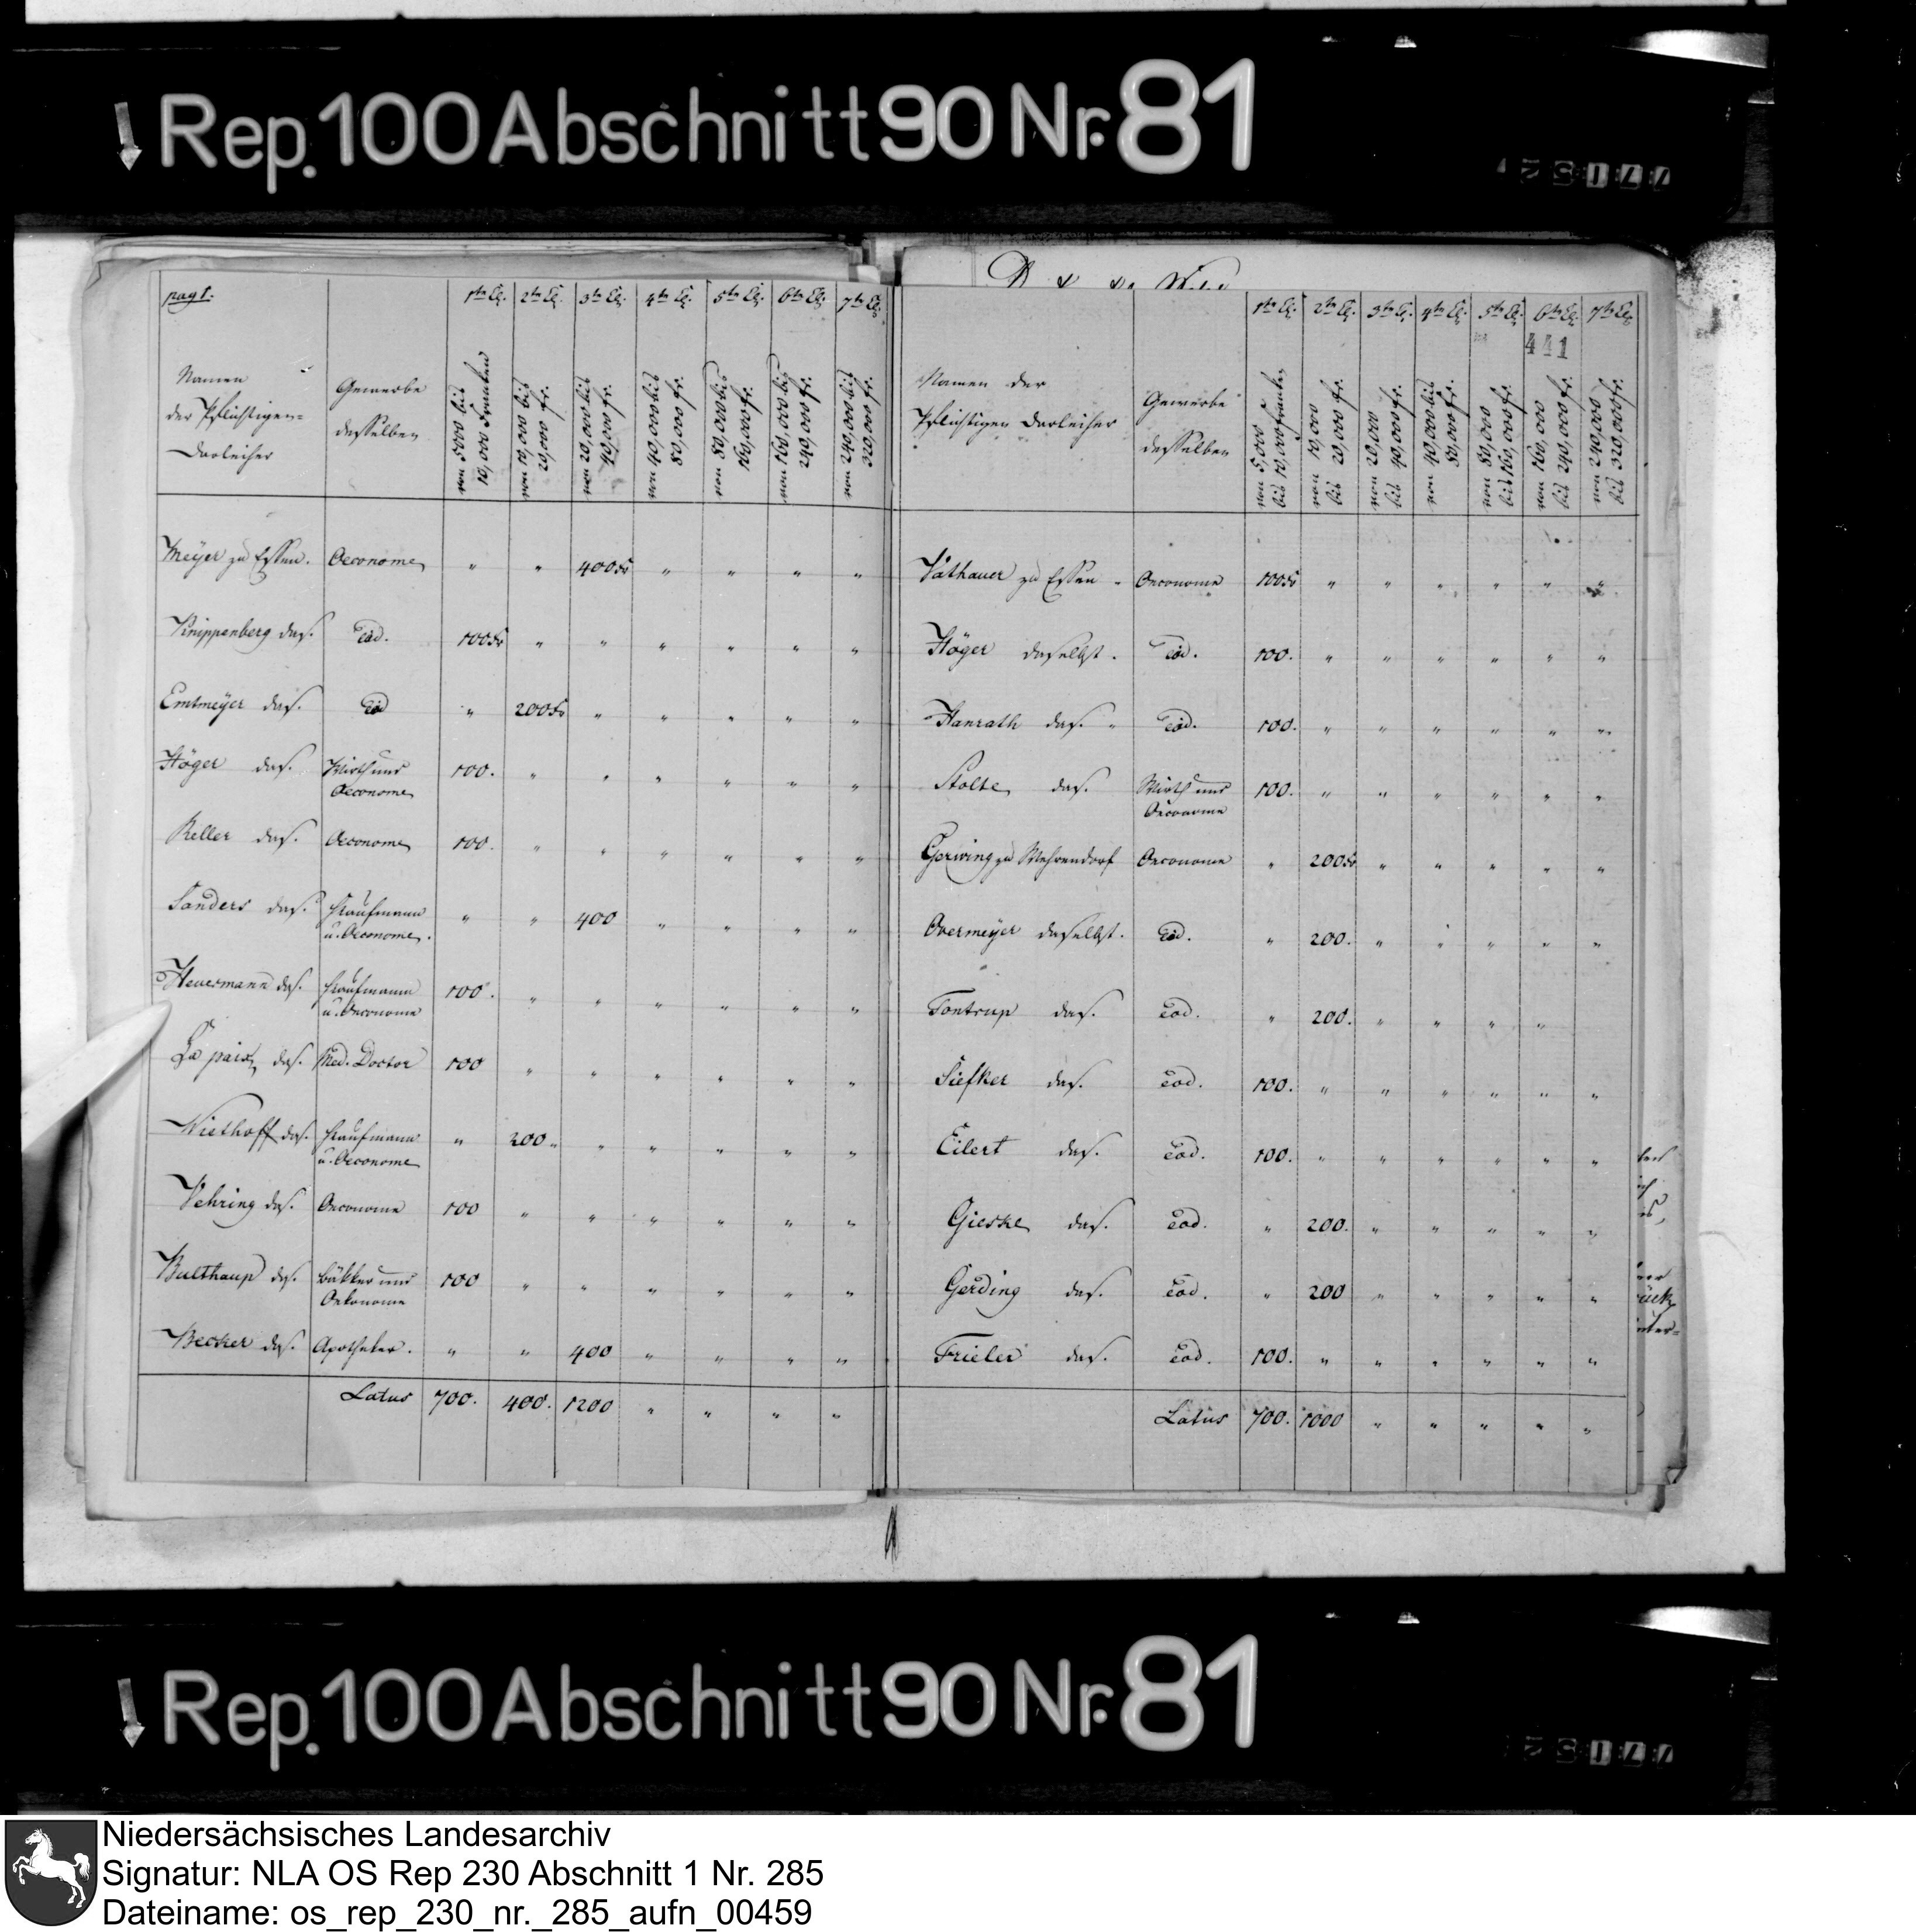 Rep. 100 Abschnitt 90 Nr. 81
pag 1. 1te Cl. 2te Cl. 3te Cl. 4te Cl. 5te Cl. 6te Cl. 7te Cl.
Namen der Pflichtigen= Darleiher
Gewerbe desselben
von 5000 bis 10,000 Franken
von 10,000 bis 20,000 fr.
von 20,000 bis 40,000 fr.
von 40,000 bis 80,000 fr.
von 80,000 bis 160,000 fr.
von 160,000 bis 240,000 fr.
von 240,000 bis 320,000 fr.
Meÿer zu Essen. Oeconome " " 400 " " " "
Knippenberg das. Eod. 100 " " " " " "
Emtmeÿer das. Eod " 200 " " " " "
Höger das. Wirth und Oeconome 100. " " " " " "
Keller das. Oeconome 100. " " " " " "
Sanders das. Kaufmann u. Oeconome. " " 400 " " " "
Heuermann das. Kaufmann u. Oeconome 100. " " " " " "
La paix das. Med. Doctor 100 " " " " " "
Wiethoff das. Kaufmann u. Oeconome " 200 " " " " "
Vehring das. Oeconome 100 " " " " " "
Bulthaup das. Bäkker und Oekonome 100 " " " " " "
Becker das. Apotheker. " " 400 " " " "
Latus 700. 400. 1200 " " " "
1te Cl. 2te Cl. 3te Cl. 4te Cl. 5te Cl. 6te Cl. 7te Cl.
441
Namen der Pflichtigen Darleiher
Gewerbe desselben
von 5,000 bis 10,000 franken
von 10,000 bis 20,000 fr.
von 20,000 bis 40,000 fr.
von 40,000 bis 80,000 fr.
von 80,000 bis 160,000 fr.
von 160,000 bis 240,000 fr.
von 240,000 bis 320,000 fr.
Vathauer zu Essen Oeconome 100 " " " " " "
Höger daselbst. Eod. 100. " " " " " "
Hanrath das. Eod. 100. " " " " " "
Stolte das. Wirth und Oeconome 100. " " " " " "
Gerwing zu Wehrendorf Oeconome " 200 " " " " "
Overmeÿer daselbst. Eod. " 200. " " " " "
Tontrup das. Eod. " 200. " " " "
Siefker das. Eod. 100. " " " " " "
Eilert das. Eod. 100. " " " " " "
Gieske das. Eod. " 200. " " " " "
Gerding das. Eod. " 200 " " " " "
Frieler das. Eod. 100. " " " " " "
Latus 700. 1000 " " " " "
Rep. 100 Abschnitt 90 Nr. 81
Niedersächsisches Landesarchiv
Signatur: NLA OS Rep 230 Abschnitt 1 Nr. 285
Dateiname: os_rep_230_nr._285_aufn_00459